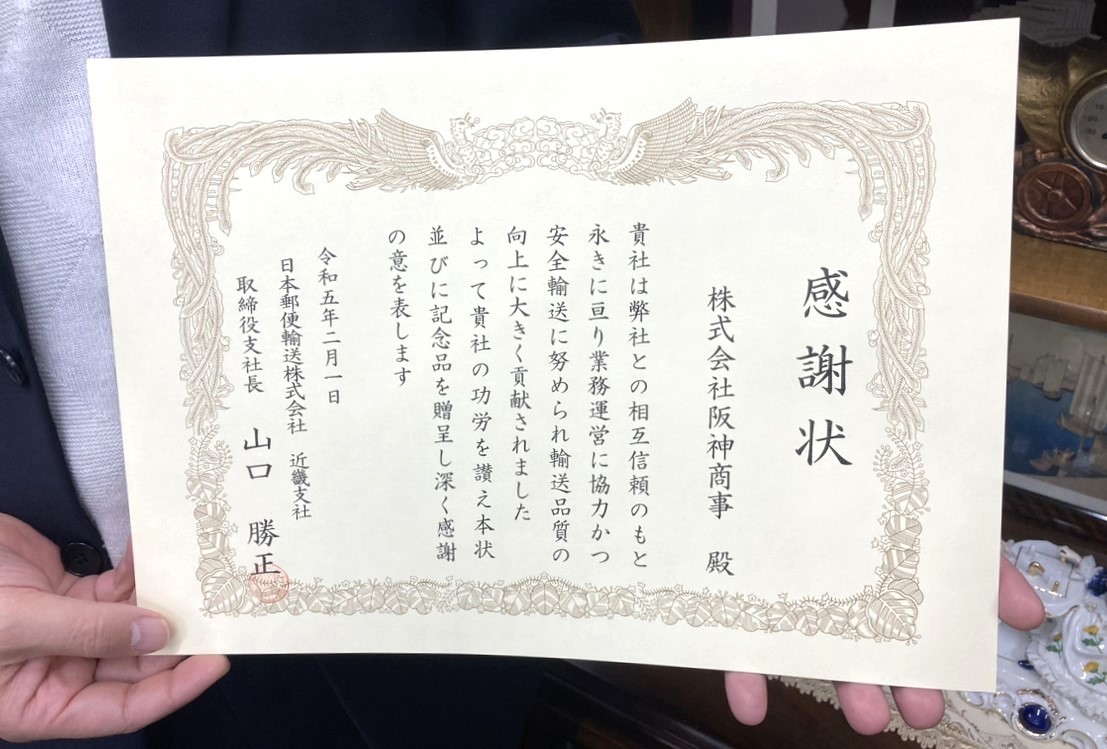 感謝状
株式会社阪神商事 殿
貴社は弊社との相互信頼のもと
永きに亘り業務運営に協力かつ
安全輸送に努められ輸送品質の
向上に大きく貢献されました
よって貴社の功労を讃え本状
並びに記念品を贈呈し深く感謝
の意を表します
令和五年二月一日
日本郵便輸送株式会社 近畿支社
取締役支社長 山口 勝正